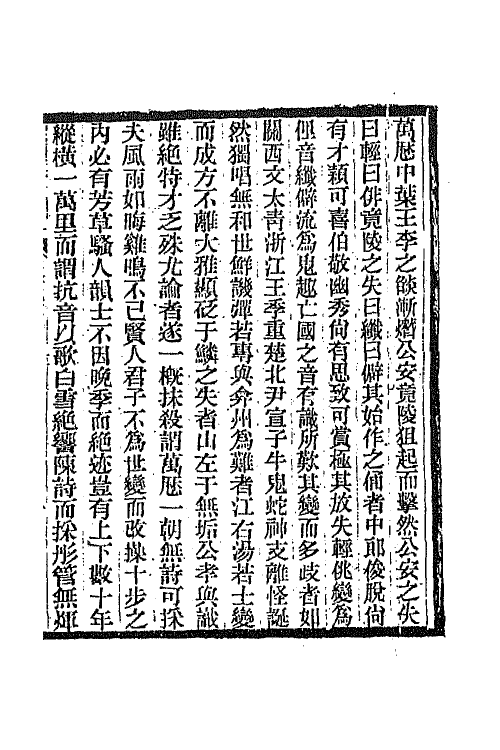 萬厯中葉王李之燄漸熸公安竟陵狙起而擊然公安之失
曰輕曰俳竟陵之失曰纖曰僻其始作之俑者中郎俊脫尙
有才穎可喜伯敬幽秀尙有思致可賞極其放失輕佻變爲
俚音纖僻流爲鬼趣亡國之音有識所歎其變而多歧者如
關西文太靑浙江王季重楚北尹宣子牛鬼蛇神支離怪誕
然獨唱無和世鮮譏彈若專與弇州爲難者江右湯若士變
而成方不離大雅顯砭于鱗之失者山左于無垢公孝與識
雖絶特才乏殊尤論者遂一槪抹殺謂萬厯一朝無詩可採
夫風雨如晦雞鳴不已賢人君子不爲世變而改操十步之
內必有芳草騷人韻士不因晚季而絶迹豈有上下數十年
縱橫一萬里而謂抗音以歌白雪絶響陳詩而採彤管無煇